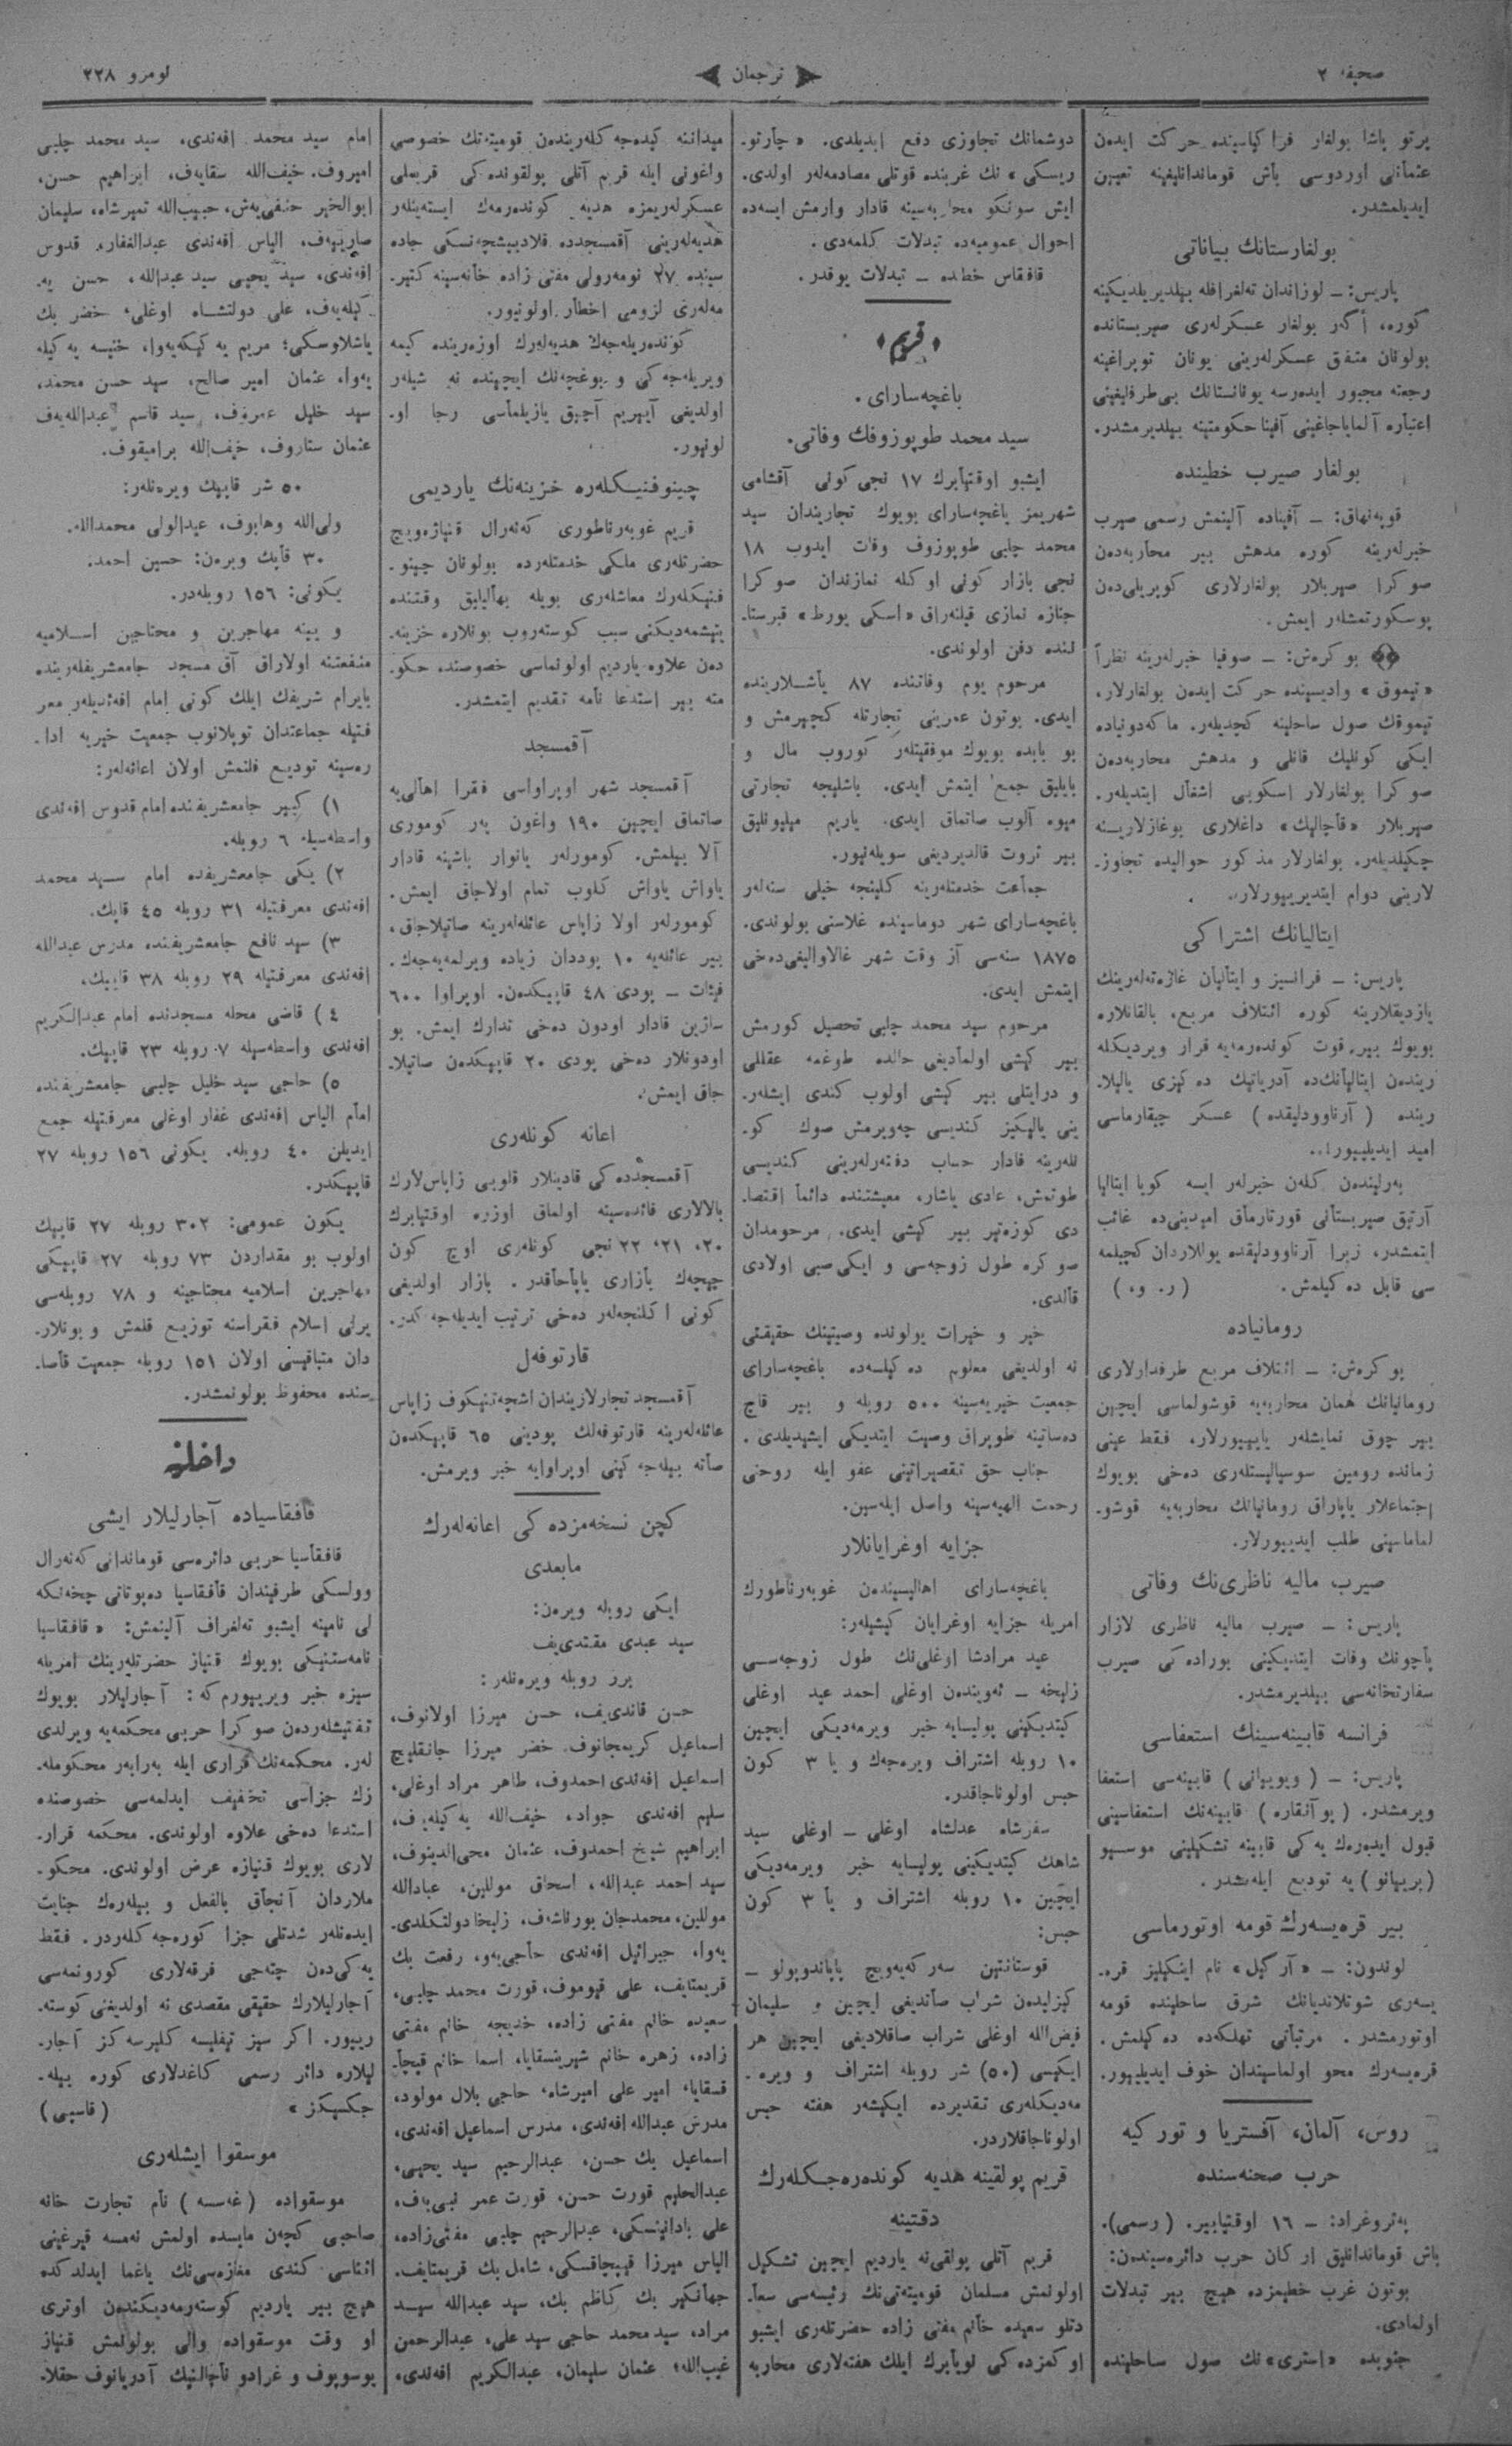 صحيفه ٢
ترجمان
نومرو ٢٢٨
پرتو پاشا بولغار قرا كياسينده حركت ايدەن
عثمانلی اوردوسی باش قوماندانليغينه تعيين
ايديلمشدر.
بولغارستانك بياناتی
پاريس: ــ لوزاندان تەلغرافله بيلديريلديكينه
كوره، أگەر بولغار عسكرلەری صيربستانده
بولونان متفق عسكرلەرينی يونان توپراغينه
رجعته مجبور ايدەرسه يونانستانك بی‌طرفليغينی
اعتباره آلماياجاغينی آفينا حكومتينه بيلديرمشدر.
بولغار صيرب خطينده
قوپەنهاق: ــ آفيناده آلينمش رسمی صيرب
خبرلەرينه كوره مدهش بير محاربەدەن
صوكرا صيربلار بولغارلاری كوپريلی‌دەن
پوسكورتمشلەر ايمش.
بوكرەش: ــ صوفيا خبرلەرينه نظراً
«تيموق» واديسينده حركت ايدەن بولغارلار،
تيموقك صول ساحلينه كچديلەر. ماكەدونياده
ايكی كونليك قانلی و مدهش محاربەدەن
صوكرا بولغارلار اسكوبی اشغال ايتديلەر.
صيربلار «قاچانيك» داغلاری بوغازلارينه
چكيلديلەر. بولغارلار مذكور حواليده تجاوز-
لارينی دوام ايتديرييورلار.
ايتاليانك اشتراكی
پاريس: ــ فرانسيز و ايتاليان غازەتەلەرينك
يازديقلارينه كوره ائتلاف مربع، بالقانلاره
بويوك بير قوت كوندەرمەيه قرار ويرديكله
ريندەن ايتاليانك‌ده آدرياتيك دەكيزی ياليلا-
رينده (آرناوودليقده) عسكر چيقارماسی
اميد ايديلييور..
بەرليندەن كلەن خبرلەر ايسه كويا ايتاليا
آرتيق صيربستانی قورتارماق اميدينی‌ده غائب
ايتمشدر، زيرا آرناوودليقده يوللاردان كچيلمه
سی قابل دەكيلمش. (ر. و.)
رومانياده
بوكرەش: ــ ائتلاف مربع طرفدارلاری
رومانيانك همان محاربەيه قوشولماسی ايچين
بير چوق نمايشلەر ياپييورلار، فقط عينی
زمانده رومين سوسياليستلەری دەخی بويوك
اجتماعلار ياپاراق رومانيانك محاربەيه قوشو-
لماماسينی طلب ايدييورلار.
صيرب ماليه ناظری‌نك وفاتی
پاريس: ــ صيرب ماليه ناظری لازار
پاچونك وفات ايتديكينی بوراده‌كی صيرب
سفارتخانەسی بيلديرمشدر.
فرانسه قابينەسينك استعفاسی
پاريس: ــ (ويوييانی) قابينەسی استعفا
ويرمشدر. (پوآنقاره) قابينەنك استعفاسينی
قبول ايدەرەك يەكی قابينه تشكيلينی موسيو
(برييانو)يه توديع ايلەمشدر.
بير قرەيسەرك قومه اوتورماسی
لوندون: ــ «آرگيل» نام اينكيليز قره-
يسەری شوتلانديانك شرق ساحلينده قومه
اوتورمشدر. مرتباتی تهلكەده دەكيلمش.
قرەيسەرك محو اولماسيندان خوف ايديلييور.
روس، آلمان، آفستريا و توركيه
حرب صحنەسنده
پەتروغراد: ــ ١٦ اوقتيابير. (رسمی).
باش قوماندانليق اركان حرب دائرەسيندەن:
بوتون غرب خطيمزده هيچ بير تبدلات
اولمادی.
جنوبده «استری»نك صول ساحلينده
دوشمانك تجاوزی دفع ايديلدی. «چارتو-
ريسكی»نك غربنده قوتلی مصادمەلەر اولدی.
ايش سونكو محاربەسينه قادار وارمش ايسەده
احوال عموميەده تبدلات كلمەدی.
قافقاس خطنده ــ تبدلات يوقدر.
قريم
باغچەسارای.
سيد محمد طوپوزوفك وفاتی.
ايشبو اوقتيابرك ١٧ نجی كونی آقشامی
شهريمز باغچەسارای بويوك تجاريندان سيد
محمد چلبی طوپوزوف وفات ايدوب ١٨
نجی بازار كونی اوكله نمازندان صوكرا
جنازه نمازی قيلنەراق «اسكی يورط» قبرستا-
ننده دفن اولوندی.
مرحوم يوم وفاتنده ٨٧ ياشلارينده
ايدی. بوتون عمرينی تجارتله كچيرمش و
بو بابده بويوك موفقيتلەر كوروب مال و
بايليق جمع ايتمش ايدی. باشليجه تجارتی
ميوه آلوب صاتماق ايدی. ياريم ميليونليق
بير ثروت قالديرديغی سويلەنيور.
جماعت خدمتلەرينه كلينجه خيلی سنەلەر
باغچەسارای شهر دوماسينده غلاسنی بولوندی.
١٨٧٥ سنەسی آز وقت شهر غالاواليغی‌دەخی
ايتمش ايدی.
مرحوم سيد محمد چلبی تحصيل كورمش
بير كيشی اولماديغی حالده طوغمه عقللی
و درايتلی بير كيشی اولوب كندی ايشلەر-
ينی يالكيز كنديسی چەويرمش صوك كو-
نلەرينه قادار حساب دفتەرلەرينی كنديسی
طوتمش، عادی ياشار، معيشتنده دائماً اقتصا-
دی كوزەتير بير كيشی ايدی. مرحومدان
صوكره طول زوجەسی و ايكی صبی اولادی
قالدی.
خير و خيرات يولونده وصيتينك حقيقتی
نه اولديغی معلوم دەكيلسەده باغچەسارای
جمعيت خيريەسينه ٥٠٠ روبله و بير قاچ
دەساتينه طوپراق وصيت ايتديكی ايشيديلدی.
جناب حق تقصيراتينی عفو ايله روحنی
رحمت الهيەسينه واصل ايلەسين.
جزايه اوغرايانلار
باغچەسارای اهاليسيندەن غوبەرناطورك
امريله جزايه اوغرايان كيشيلەر:
عيد مرادشا اوغلی‌نك طول زوجەسی
زليخه ــ ئەويندەن اوغلی احمد عيد اوغلی
كيتديكينی پوليسايه خبر ويرمەديكی ايچين
١٠ روبله اشتراف ويرەجەك و يا ٣ كون
حبس اولوناجاقدر.
سفرشاه عدلشاه اوغلی ــ اوغلی سيد
شاهك كيتديكينی پوليسايه خبر ويرمەديكی
ايچين ١٠ روبله اشتراف و يا ٣ كون
حبس:
قوستانتين سەرگەيەويچ پاپاندوپولو ــ
كيزليدەن شراب صاتديغی ايچين و سليمان
فيض‌الله اوغلی شراب صاقلاديغی ايچين هر
ايكيسی (٥٠) شر روبله اشتراف و ويره-
مەديكلەری تقديرده ايكيشەر هفته حبس
اولوناجاقلاردر.
قريم پولقينه هديه كوندەرەجكلەرك
دقتينه
قريم آتلی پولقی‌نه يارديم ايچين تشكيل
اولونمش مسلمان قوميتەتی‌نك رئيسەسی سعا-
دتلو سعيده خانم مفتی زاده حضرتلەری ايشبو
اوكمزده‌كی نويابرك ايلك هفتەلاری محاربه
ميداننه كيدەجەكلەريندەن قوميتەنك خصوصی
واغونی ايله قريم آتلی پولقونده‌كی قريملی
عسكرلەريمزه هديه كوندەرمەك ايستەينلەر
هديەلەرينی آقمسجدده قلادبيشچەنسكی جاده
سينده ٢٧ نومەرولی مفتی زاده خانەسينه كتير-
مەلەری لزومی اخطار اولونيور.
كوندەريلەجەك هديەلەرك اوزەرينده كيمه
ويريلەجەكی و بوغچەنك ايچينده نه شيلەر
اولديغی آيريم آچيق يازيلماسی رجا او-
لونيور.
چينوفنيكلەره خزينەنك يارديمی
قريم غوبەرناطوری كەنەرال قنيازەويچ
حضرتلەری ملكی خدمتلەرده بولونان چينو-
فنيكلەرك معاشلەری بويله بهاليليق وقتنده
يتيشمەديكنی سبب كوستەروب بونلاره خزينه-
دەن علاوه يارديم اولونماسی خصوصنده حكو-
مته بير استدعا نامه تقديم ايتمشدر.
آقمسجد
آقمسجد شهر اوپراواسی فقرا اهالی‌يه
صاتماق ايچين ١٩٠ واغون يەر كوموری
آلا بيلمش. كومورلەر يانوار باشينه قادار
ياواش ياواش كلوب تمام اولاجاق ايمش.
كومورلەر اولا زاپاس عائلەلەرينه صاتيلاجاق،
بير عائلەيه ١٠ پوددان زياده ويرلمەيەجەك.
فيئات ــ پودی ٤٨ قاپيكدەن. اوپراوا ٦٠٠
ساژين قادار اودون دەخی تدارك ايمش. بو
اودونلار دەخی پودی ٢٠ قاپيكدەن صاتيلا-
جاق ايمش.
اعانه كونلەری
آقمسجدده‌كی قادينلار قلوبی زاپاس‌لارك
بالالاری فائدەسينه اولماق اوزره اوقتيابرك
٢٠، ٢١، ٢٢ نجی كونلەری اوچ كون
چيچەك بازاری ياپاجاقدر. بازار اولديغی
كونی اكلنجەلەر دەخی ترتيب ايديلەجەكدر.
قارتوفەل
آقمسجد تجارلاريندان اشچەتنيكوف زاپاس
عائلەلەرينه قارتوفەلك پودينی ٦٥ قاپيكدەن
صاته بيلەجەكينی اوپراوايه خبر ويرمش.
كچن نسخەمزده‌كی اعانەلەرك
مابعدی
ايكی روبله ويرەن:
سيد عبدی مقتدی‌يف
برر روبله ويرەنلەر:
حسن قاندی‌يف، حسن ميرزا اولانوف،
اسماعيل كريمجانوف. خضر ميرزا جانقليچ
اسماعيل افەندی احمدوف، طاهر مراد اوغلی،
سليم افەندی جواد، خيف‌الله يەكيلەيف،
ابراهيم شيخ احمدوف، عثمان محی‌الدينوف،
سيد احمد عبدالله، اسحاق موللين، عبادالله
موللين، محمدجان بورناشەف، زليخا دولتكلدی-
يەوا، جبرائيل افەندی حاجی‌يەو، رفعت بك
قريمتايف، علی قيوموف، قورت محمد چلبی،
سعيده خانم مفتی زاده، خديجه خانم مفتی
زاده، زهره خانم شيرينسقايا، اسما خانم قيچا-
قسقايا، امير علی اميرشاه، حاجی بلال مولود،
مدرس عبدالله افەندی، مدرس اسماعيل افەندی،
اسماعيل بك حسن، عبدالرحيم سيد يحيی،
عبدالحليم قورت حسن، قورت عمر نبی‌يەف،
علی بادانينسكی، عبدالرحيم چلبی مفتی‌زاده،
الياس ميرزا قيپچاقسكی، شامل بك قريمتايف،
جهانكير بك كاظم بك، سيد عبدالله سيد
مراد، سيد محمد حاجی سيد علی، عبدالرحمن
غيب‌الله، عثمان سليمان، عبدالكريم افەندی،
امام سيد محمد افەندی، سيد محمد چلبی
اميروف، خيف‌الله سقايەف، ابراهيم حسن،
ابوالخير حنفی‌يەش، حبيب‌الله تميرشاه، سليمان
صاريپەف، الياس افەندی عبدالغفار، قدوس
افەندی، سيد يحيی سيد عبدالله، حسن يە-
كيلەيەف، علی دولتشاه اوغلی، خضر بك
ياشلاوسكی؛ مريم يەكيكەيەوا، خنيسه يەكيله
يەوا، عثمان امير صالح، سيد حسن محمد،
سيد خليل عمروف، سيد قاسم عبداللەيەف
عثمان ستاروف، خيف‌الله براميقوف.
٥٠ شر قاپيك ويرەنلەر:
ولی‌الله وهابوف، عبدالولی محمدالله.
٣٠ قاپك ويرەن: حسين احمد.
يكونی: ١٥٦ روبلەدر.
و يينه مهاجرين و محتاجين اسلاميه
منفعتنه اولاراق آق مسجد جامعشريفلەرينده
بايرام شريفك ايلك كونی امام افەنديلەر معر
فتيله جماعتدان توپلانوب جمعيت خيريه ادا-
رەسينه توديع قلنمش اولان اعانەلەر:
١) كبير جامعشريفنده امام قدوس افەندی
واسطەسيله ٦ روبله.
٢) يكی جامعشريفده امام سيد محمد
افەندی معرفتيله ٣١ روبله ٤٥ قاپك.
٣) سيد نافع جامعشريفنده مدرس عبدالله
افەندی معرفتيله ٢٩ روبله ٣٨ قاپيك.
٤) قاضی محله مسجدنده امام عبدالكريم
افەندی واسطەسيله ٧٠ روبله ٢٣ قاپيك.
٥) حاجی سيد خليل چلبی جامعشريفنده
امام الياس افەندی غفار اوغلی معرفتيله جمع
ايديلن ٤٠ روبله. يكونی ١٥٦ روبله ٢٧
قاپيكدر.
يكون عمومی: ٣٠٢ روبله ٢٧ قاپيك
اولوب بو مقداردن ٧٣ روبله ٢٧ قاپيكی
مهاجرين اسلاميه محتاجينه و ٧٨ روبلەسی
يرلی اسلام فقراسنه توزيع قلنمش و بونلار-
دان متباقيسی اولان ١٥١ روبله جمعيت قاصا-
سنده محفوظ بولونمشدر.
داخليه
قافقاسياده آجارليلار ايشی
قافقاسيا حربی دائرەسی قوماندانی كەنەرال
وولسكی طرفيندان قافقاسيا دەپوتاتی چخەنكه
لی نامينه ايشبو تەلغراف آلينمش: «قافقاسيا
نامەستنيكی بويوك قنياز حضرتلەرينك امريله
سيزه خبر ويرييورم كه: آجارليلار بويوك
تفتيشلەردەن صوكرا حربی محكمەيه ويرلدی
لەر. محكمەنك قراری ايله بەرابەر محكومله-
رك جزاسی تخفيف ايدلمەسی خصوصنده
استدعا دەخی علاوه اولوندی. محكمه قرار-
لاری بويوك قنيازه عرض اولوندی. محكو-
ملاردان آنجاق بالفعل و بيلەرەك جنايت
ايدەنلەر شدتلی جزا كورەجەكلەردر. فقط
يەكی‌دەن چتەجی فرقەلاری كورونمەسی
آجارليلارك حقيقی مقصدی نه اولديغنی كوسته-
رييور. اكر سيز تيفليسه كليرسەكز آجار-
ليلاره دائر رسمی كاغدلاری كوره بيله-
جكسيكز» (قاسپی)
موسقوا ايشلەری
موسقواده (غەسسه) نام تجارت خانه
صاحبی كچەن مايسده اولمش نەمسه قيرغينی
اثناسی كندی مغازەسی‌نك ياغما ايدلدكده
هيچ بير يارديم كوستەرمەديكندەن اوتری
او وقت موسقواده والی بولونمش قنياز
يوسوپوف و غرادو ناچالنيك آدريانوف حقلا-